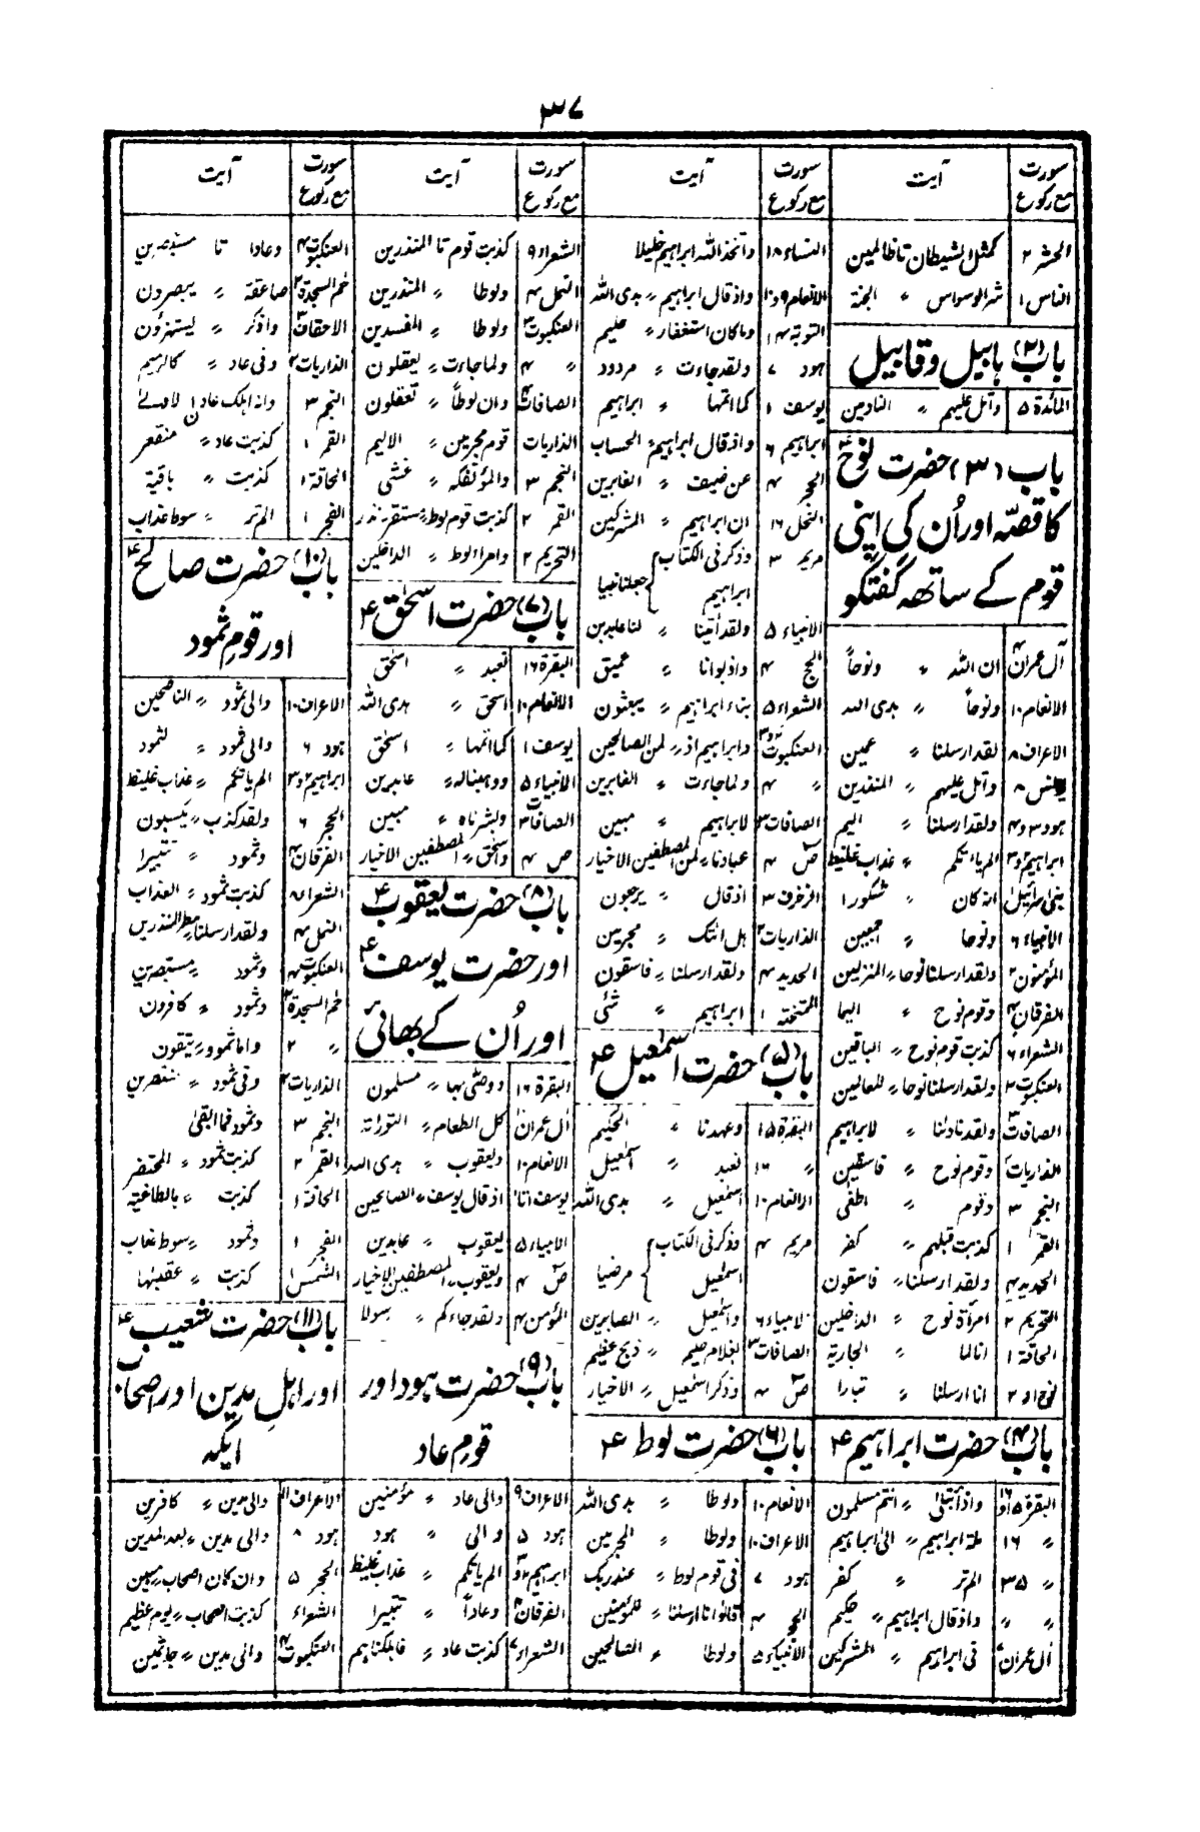 ۳۷
سورت مع رکوع آیت
الحشر ۲ کمثل الشیطان تا ظالمین
الناس ۱ شر الوسواس 〃 الجنة
باب (۲) ہابیل و قابیل
المائدة ۵ واتل علیہم 〃 النادمین
باب (۳) حضرت نوحؑ
کا قصّہ اور اُن کی اپنی
قوم کے ساتھ گفتگو
آل عمران ۴ ان اللہ 〃 ونوحاً
الانعام ۱۰ ونوحاً 〃 ہدی اللہ
الاعراف ۸ لقد ارسلنا 〃 عمین
یونس ۸ واتل علیہم 〃 المنذرین
ہود ۳ و ۴ ولقد ارسلنا 〃 الیم
ابراہیم ۲ و ۳ الم یاتکم 〃 عذاب غلیظ
بنی اسرائیل انہ کان 〃 شکورا
الانبیاء ۶ ونوحا 〃 اجمعین
المؤمنون ۲ ولقد ارسلنا نوحا 〃 المنزلین
الفرقان ۴ وقوم نوح 〃 الیما
الشعراء ۶ کذبت قوم نوح 〃 الباقین
العنکبوت ۲ ولقد ارسلنا نوحا 〃 للعالمین
الصافات ۳ ولقد نادٰنا 〃 لابراہیم
الذاریات وقوم نوح 〃 فاسقین
النجم ۳ وقوم 〃 اطغی
القمر ۱ کذبت قبلہم 〃 کفر
الحدید ۴ ولقد ارسلنا 〃 فاسقون
التحریم ۲ امرأة نوح 〃 الداخلین
الحاقة ۱ انا لما 〃 الجاریة
نوح ۱ و ۲ انا ارسلنا 〃 تبارا
باب (۴) حضرت ابراہیمؑ
البقرة ۱۵ و ۱۶ واذ ابتلیٰ 〃 انتم مسلمون
〃 ۱۶ ملة ابراہیم 〃 الیٰ ابراہیم
〃 ۳۵ الم تر 〃 کفر
〃 〃 واذ قال ابراہیم 〃 حکیم
آل عمران فی ابراہیم 〃 المشرکین
سورت مع رکوع آیت
النساء ۱۸ واتخذ اللہ ابراہیم خلیلا
الانعام ۹ و ۱۰ واذ قال ابراہیم 〃 ہدی اللہ
التوبة ۱۴ وما کان استغفار 〃 حلیم
ہود ۷ ولقد جاءت 〃 مردود
یوسف ۱ کما اتمہا 〃 ابراہیم
ابراہیم ۶ واذ قال ابراہیم 〃 الحساب
الحجر ۴ عن ضیف 〃 الغابرین
النحل ۱۶ ان ابراہیم 〃 المشرکین
مریم ۳ وذکر فی الکتاب ابراہیم } جعلنا نبیا
الانبیاء ۵ ولقد آتینا 〃 لنا عابدین
الحج ۴ واذ بوانا 〃 عمیق
الشعراء ۵ نباء ابراہیم 〃 یبعثون
العنکبوت ۲ و ۳ وابراہیم اذ 〃 لمن الصالحین
〃 ۴ ولما جاءت 〃 الغابرین
الصافات ۳ لابراہیم 〃 مبین
ص ۴ عبادنا 〃 لمن المصطفین الاخیار
الزخرف ۳ اذ قال 〃 یرجعون
الذاریات ۲ ہل اتٰک 〃 مجرمین
الحدید ۴ ولقد ارسلنا 〃 فاسقون
الممتحنہ ۱ ابراہیم 〃 شئی
باب (۵) حضرت اسمٰعیلؑ
البقرة ۱۵ وعہدنا 〃 الحکیم
〃 ۱۶ نعبد 〃 اسمٰعیل
الانعام ۱۰ اسمٰعیل 〃 ہدی اللہ
مریم ۴ وذکر فی الکتاب اسمٰعیل } مرضیا
الانبیاء ۶ واسمٰعیل 〃 الصابرین
الصافات ۳ بغلام حلیم 〃 ذبح عظیم
ص ۴ وذکر اسمٰعیل 〃 الاخیار
باب (۶) حضرت لوطؑ
الانعام ۱۰ ولوطا 〃 ہدی اللہ
الاعراف ۱۰ ولوطا 〃 المجرمین
ہود ۷ فی قوم لوط 〃 عند ربک
الحجر ۴ قالوا انا ارسلنا 〃 للمؤمنین
الانبیاء ۵ ولوطا 〃 الصالحین
سورت مع رکوع آیت
الشعراء ۹ کذبت قوم تا المنذرین
النمل ۴ ولوطا 〃 المنذرین
العنکبوت ۳ ولوطا 〃 المفسدین
〃 ۴ ولما جاءت 〃 یعقلون
الصافات ۴ وان لوطاً 〃 تعقلون
الذاریات قوم مجرمین 〃 الالیم
النجم ۳ والمؤتفکہ 〃 غشی
القمر ۲ کذبت قوم لوط 〃 مستقر ونذر
التحریم ۲ وامراة لوط 〃 الداخلین
باب (۷) حضرت اسحٰقؑ
البقرة ۱۶ نعبد 〃 اسحٰق
الانعام ۱۰ اسحٰق 〃 ہدی اللہ
یوسف ۱ کما اتمہا 〃 اسحٰق
الانبیاء ۵ ووہبنا لہ 〃 عابدین
الصافات ۳ وبشرناہ 〃 مبین
ص ۴ واسحٰق 〃 المصطفین الاخیار
باب (۸) حضرت یعقوبؑ
اور حضرت یوسفؑ
اور اُن کے بھائی
البقرة ۱۶ ووصّٰی بہا 〃 مسلمون
آل عمران کل الطعام 〃 التوراتہ
الانعام ۱۰ ویعقوب 〃 ہدی اللہ
یوسف اتا اذ قال یوسف 〃 الصالحین
الانبیاء ۵ یعقوب 〃 عابدین
ص ۴ ویعقوب 〃 المصطفین الاخیار
المؤمن ۴ ولقد جاءکم 〃 رسولا
باب (۹) حضرت ہود اور
قوم عاد
الاعراف ۹ والی عاد 〃 مؤمنین
ہود ۵ والی 〃 ہود
ابراہیم الم یاتکم 〃 عذاب غلیظ
الفرقان ۴ وعاداً 〃 تتبیرا
الشعراء ۷ کذبت عاد 〃 فاہلکناہم
سورت مع رکوع آیت
العنکبوت ۴ وعادا تا مستبصرین
حٰم السجدة ۲ صاعقة 〃 یبصرون
الاحقاف ۳ واذکر 〃 یستہزؤن
الذاریات ۲ وفی عاد 〃 کالرمیم
النجم ۳ وانہ اہلک عاد ن الاولیٰ
القمر ۱ کذبت عاد 〃 منقعر
الحاقة ۱ کذبت 〃 باقیة
الفجر ۱ الم تر 〃 سوط عذاب
باب (۱۰) حضرت صالحؑ
اور قوم ثمود
الاعراف ۱۰ والی ثمود 〃 الناصحین
ہود ۶ والی ثمود 〃 لثمود
ابراہیم ۲ و ۳ الم یاتکم 〃 عذاب غلیظ
الحجر ۶ ولقد کذب 〃 یکسبون
الفرقان ۴ وثمود 〃 تتبیرا
الشعراء ۸ کذبت ثمود 〃 العذاب
النمل ۴ ولقد ارسلنا 〃 مطر المنذرین
العنکبوت ۴ وثمود 〃 مستبصرین
حٰم السجدة ۲ وثمود 〃 کافرون
〃 ۲ واما ثمود 〃 یتقون
الذاریات ۲ وفی ثمود 〃 منتصرین
النجم ۳ وثمود فما ابقیٰ
القمر ۲ کذبت ثمود 〃 المحتضر
الحاقة ۱ کذبت 〃 بالطاغیة
الفجر ۱ وثمود 〃 سوط عذاب
الشمس ۱ کذبت 〃 عقبٰہا
باب (۱۱) حضرت شعیبؑ
اور اہلِ مدین اور اصحاب
ایکہ
الاعراف ۱۱ والی مدین 〃 کافرین
ہود ۸ والی مدین 〃 بعد لمدین
الحجر ۵ وان کان اصحاب 〃 مبین
الشعراء کذبت اصحاب 〃 یوم عظیم
العنکبوت ۴ والی مدین 〃 جاثمین